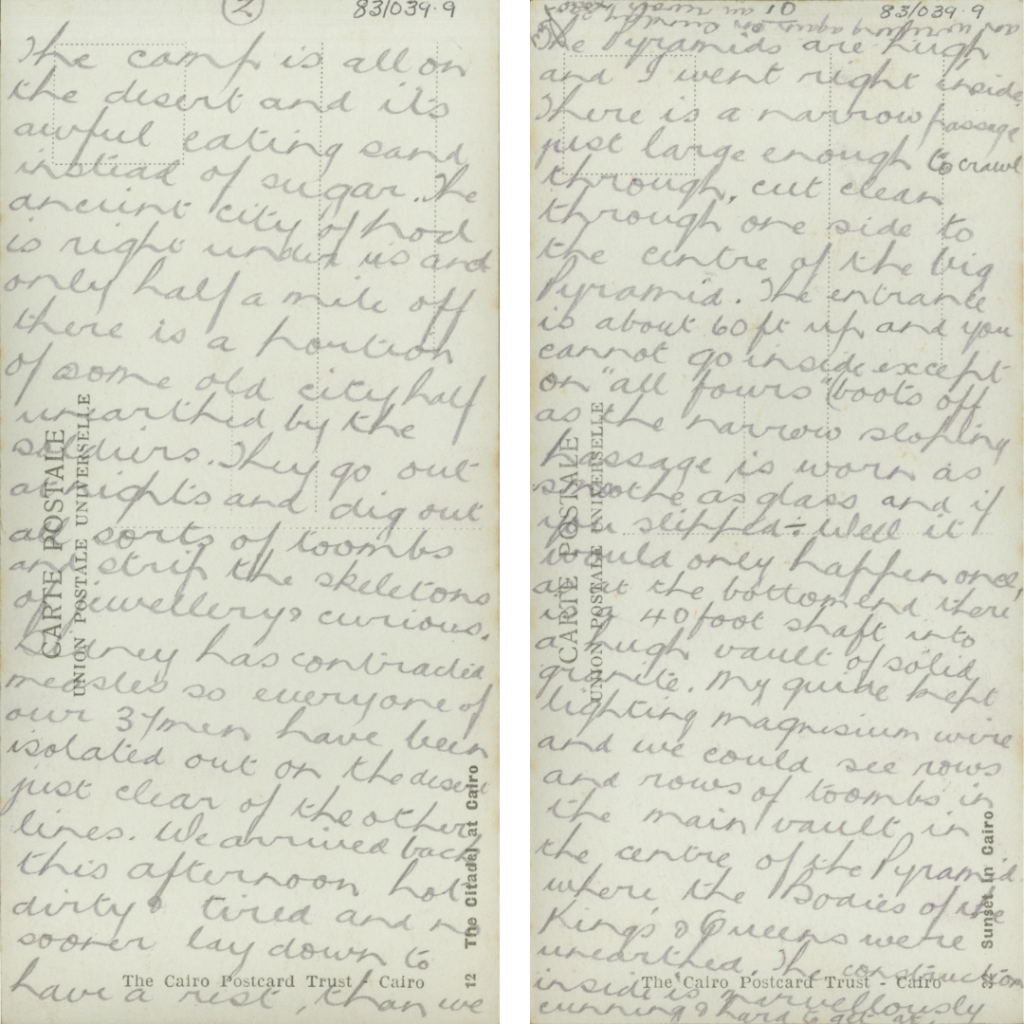 2
83/039.9
The camp is all on
the desert and it's
awful eating sand
instead of sugar. The
ancient city of nod
is right under us and
only half a mile off
there is a portion
of some old city half
unearthed by the
soldiers. They go out
at nights and dig out
all sorts of toombs
and strip the skeletons
of jewellery & curious.
has contracted
measles so everyone of
our 37 men have been
isolated out on the desert
just clear of the other
lines. We arrived back
this afternoon hot
dirty & tired and no
sooner lay down to
have a rest, than we
CARTE POSTALE
UNION POSTALE UNIVERSELLE
12 The Citadel at Cairo
The Cairo Postcard Trust - Cairo
83/039.9
The Pyramids are hugh
and I went right inside.
There is a narrow passage
just large enough to crawl
through, cut clean
through one side to
the centre of the big
Pyramid. The entrance
is about 60ft up and you
cannot go inside except
on "all fours" boots off
as the narrow sloping
passage is worn as
smoothe as glass and if
you slipped ÷ Well it
would only happen once,
as at the bottom end there
is a 40 foot shaft into
a hugh vault of solid
granite. My guide kept
lighting magnesium wire
and we could see rows
and rows of toombs in
the main vault in
the centre of the Pyramid
where the Bodies of the
King's & Queens were
unearthed. The construction
inside is marvellously
cunning & hard to get at
CARTE POSTALE
UNION POSTALE UNIVERSELLE
Sunset in Cairo
The Cairo Postcard Trust - Cairo